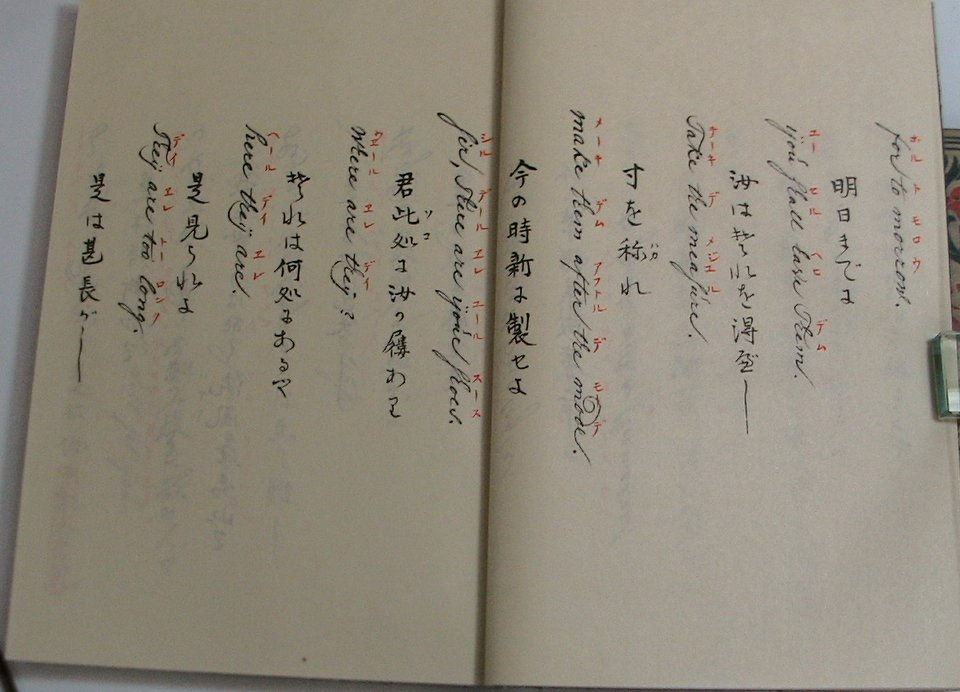 ホル ト モロウ
for to morrow.
明日までに
デム
you shall have them.
汝は其れを得可し
テーキ デ メジュル
Take the measure.
寸を称れ
メーキ デム アフトル デ モデ
make them after the mode.
今の時新に製せよ
シル デール エレ ユール スース
sir, there are your shoes.
君此処に汝の履あり
ココ
ウェール エレ デイ
Where are they?
其れは何処にあるや
ヘール デイ エレ
here they are.
是見られよ
デイ エレ トー ロング
They are too long.
是は甚長し